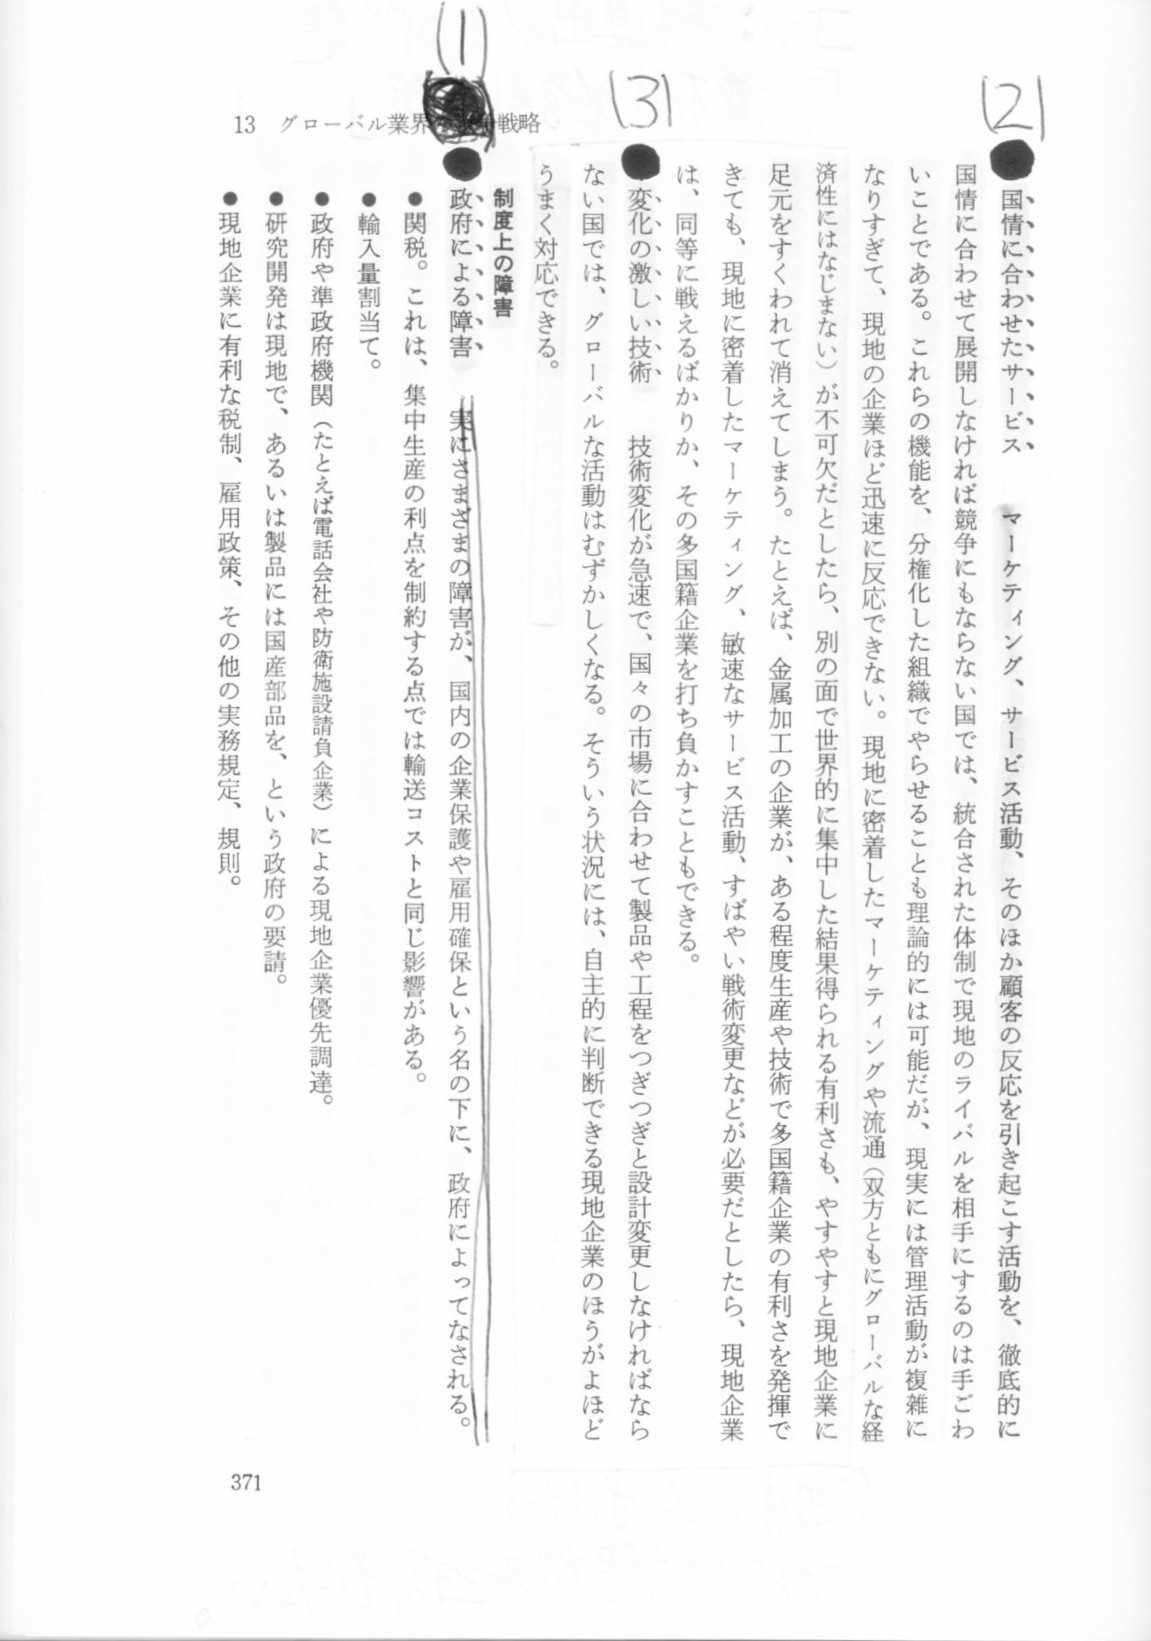 13 グローバル業界 戦略
(2)
国情に合わせたサービス　マーケティング、サービス活動、そのほか顧客の反応を引き起こす活動を、徹底的に
国情に合わせて展開しなければ競争にもならない国では、統合された体制で現地のライバルを相手にするのは手ごわ
いことである。これらの機能を、分権化した組織でやらせることも理論的には可能だが、現実には管理活動が複雑に
なりすぎて、現地の企業ほど迅速に反応できない。現地に密着したマーケティングや流通(双方ともにグローバルな経
済性にはなじまない)が不可欠だとしたら、別の面で世界的に集中した結果得られる有利さも、やすやすと現地企業に
足元をすくわれて消えてしまう。たとえば、金属加工の企業が、ある程度生産や技術で多国籍企業の有利さを発揮で
きても、現地に密着したマーケティング、敏速なサービス活動、すばやい戦術変更などが必要だとしたら、現地企業
は、同等に戦えるばかりか、その多国籍企業を打ち負かすこともできる。
(3)
変化の激しい技術　技術変化が急速で、国々の市場に合わせて製品や工程をつぎつぎと設計変更しなければなら
ない国では、グローバルな活動はむずかしくなる。そういう状況には、自主的に判断できる現地企業のほうがよほど
うまく対応できる。
制度上の障害
(1)
政府による障害　実にさまざまの障害が、国内の企業保護や雇用確保という名の下に、政府によってなされる。
●関税。これは、集中生産の利点を制約する点では輸送コストと同じ影響がある。
●輸入量割当て。
●政府や準政府機関(たとえば電話会社や防衛施設請負企業)による現地企業優先調達。
●研究開発は現地で、あるいは製品には国産部品を、という政府の要請。
●現地企業に有利な税制、雇用政策、その他の実務規定、規則。
371